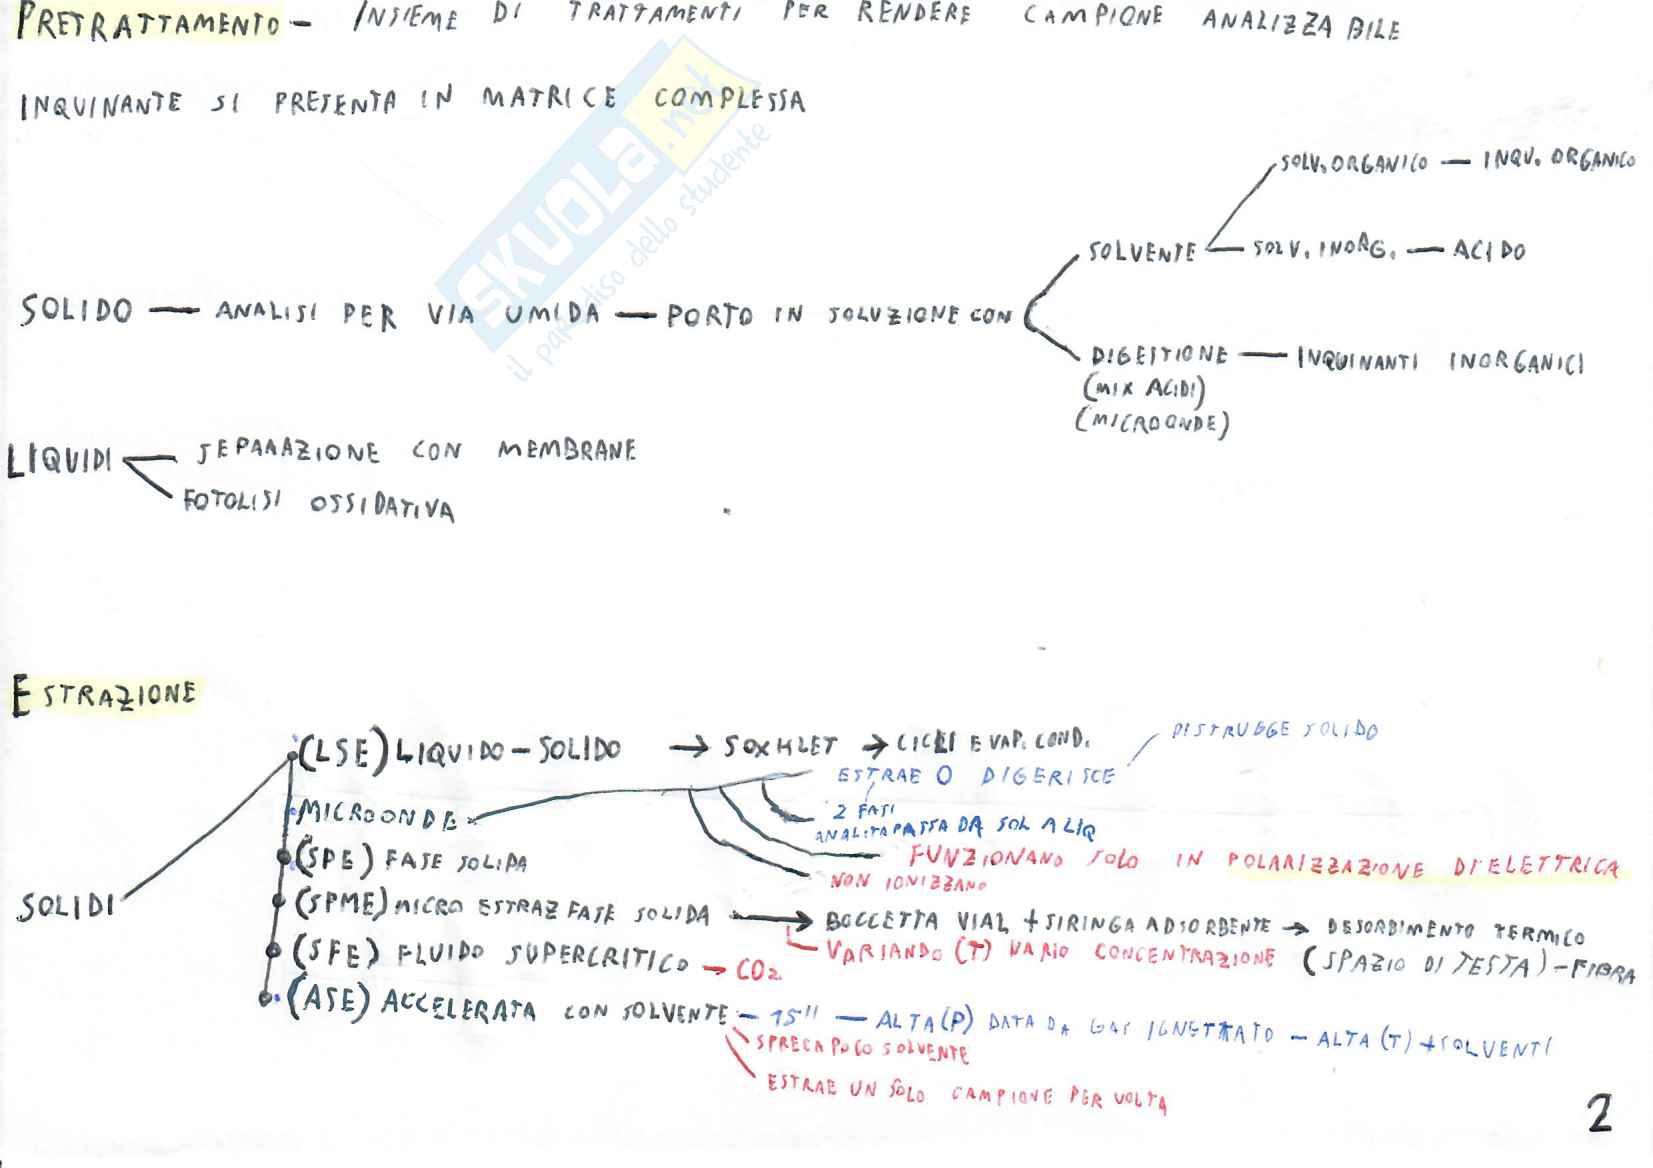 PRETRATTAMENTO - INSIEME DI TRATTAMENTI PER RENDERE CAMPIONE ANALIZZABILE
INQUINANTE SI PRESENTA IN MATRICE COMPLESSA
SKUOLA.net
il paradiso dello studente
SOLV. ORGANICO — INQU. ORGANICO
SOLVENTE — SOLV. INORG. — ACIDO
SOLIDO — ANALISI PER VIA UMIDA — PORTO IN SOLUZIONE CON
DIGESTIONE — INQUINANTI INORGANICI
(MIX ACIDI)
(MICROONDE)
LIQUIDI — SEPARAZIONE CON MEMBRANE
FOTOLISI OSSIDATIVA
ESTRAZIONE
DISTRUGGE SOLIDO
(LSE) LIQUIDO - SOLIDO → SOXHLET → CICLI EVAP. COND.
ESTRAE O DIGERISCE
MICROONDE
2 FASI
ANALITA PASSA DA SOL A LIQ
(SPE) FASE SOLIDA
FUNZIONANO SOLO IN POLARIZZAZIONE DIELETTRICA
NON IONIZZANO
SOLIDI
(SPME) MICRO ESTRAZ FASE SOLIDA → BOCCETTA VIAL + SIRINGA ADSORBENTE → DESORBIMENTO TERMICO
VARIANDO (T) VARIO CONCENTRAZIONE (SPAZIO DI TESTA) - FIBRA
(SFE) FLUIDO SUPERCRITICO → CO2
(ASE) ACCELERATA CON SOLVENTE - 15" — ALTA (P) DATA DA GAS IGNETTATO - ALTA (T) + SOLVENTI
SPRECA POCO SOLVENTE
ESTRAE UN SOLO CAMPIONE PER VOLTA
2